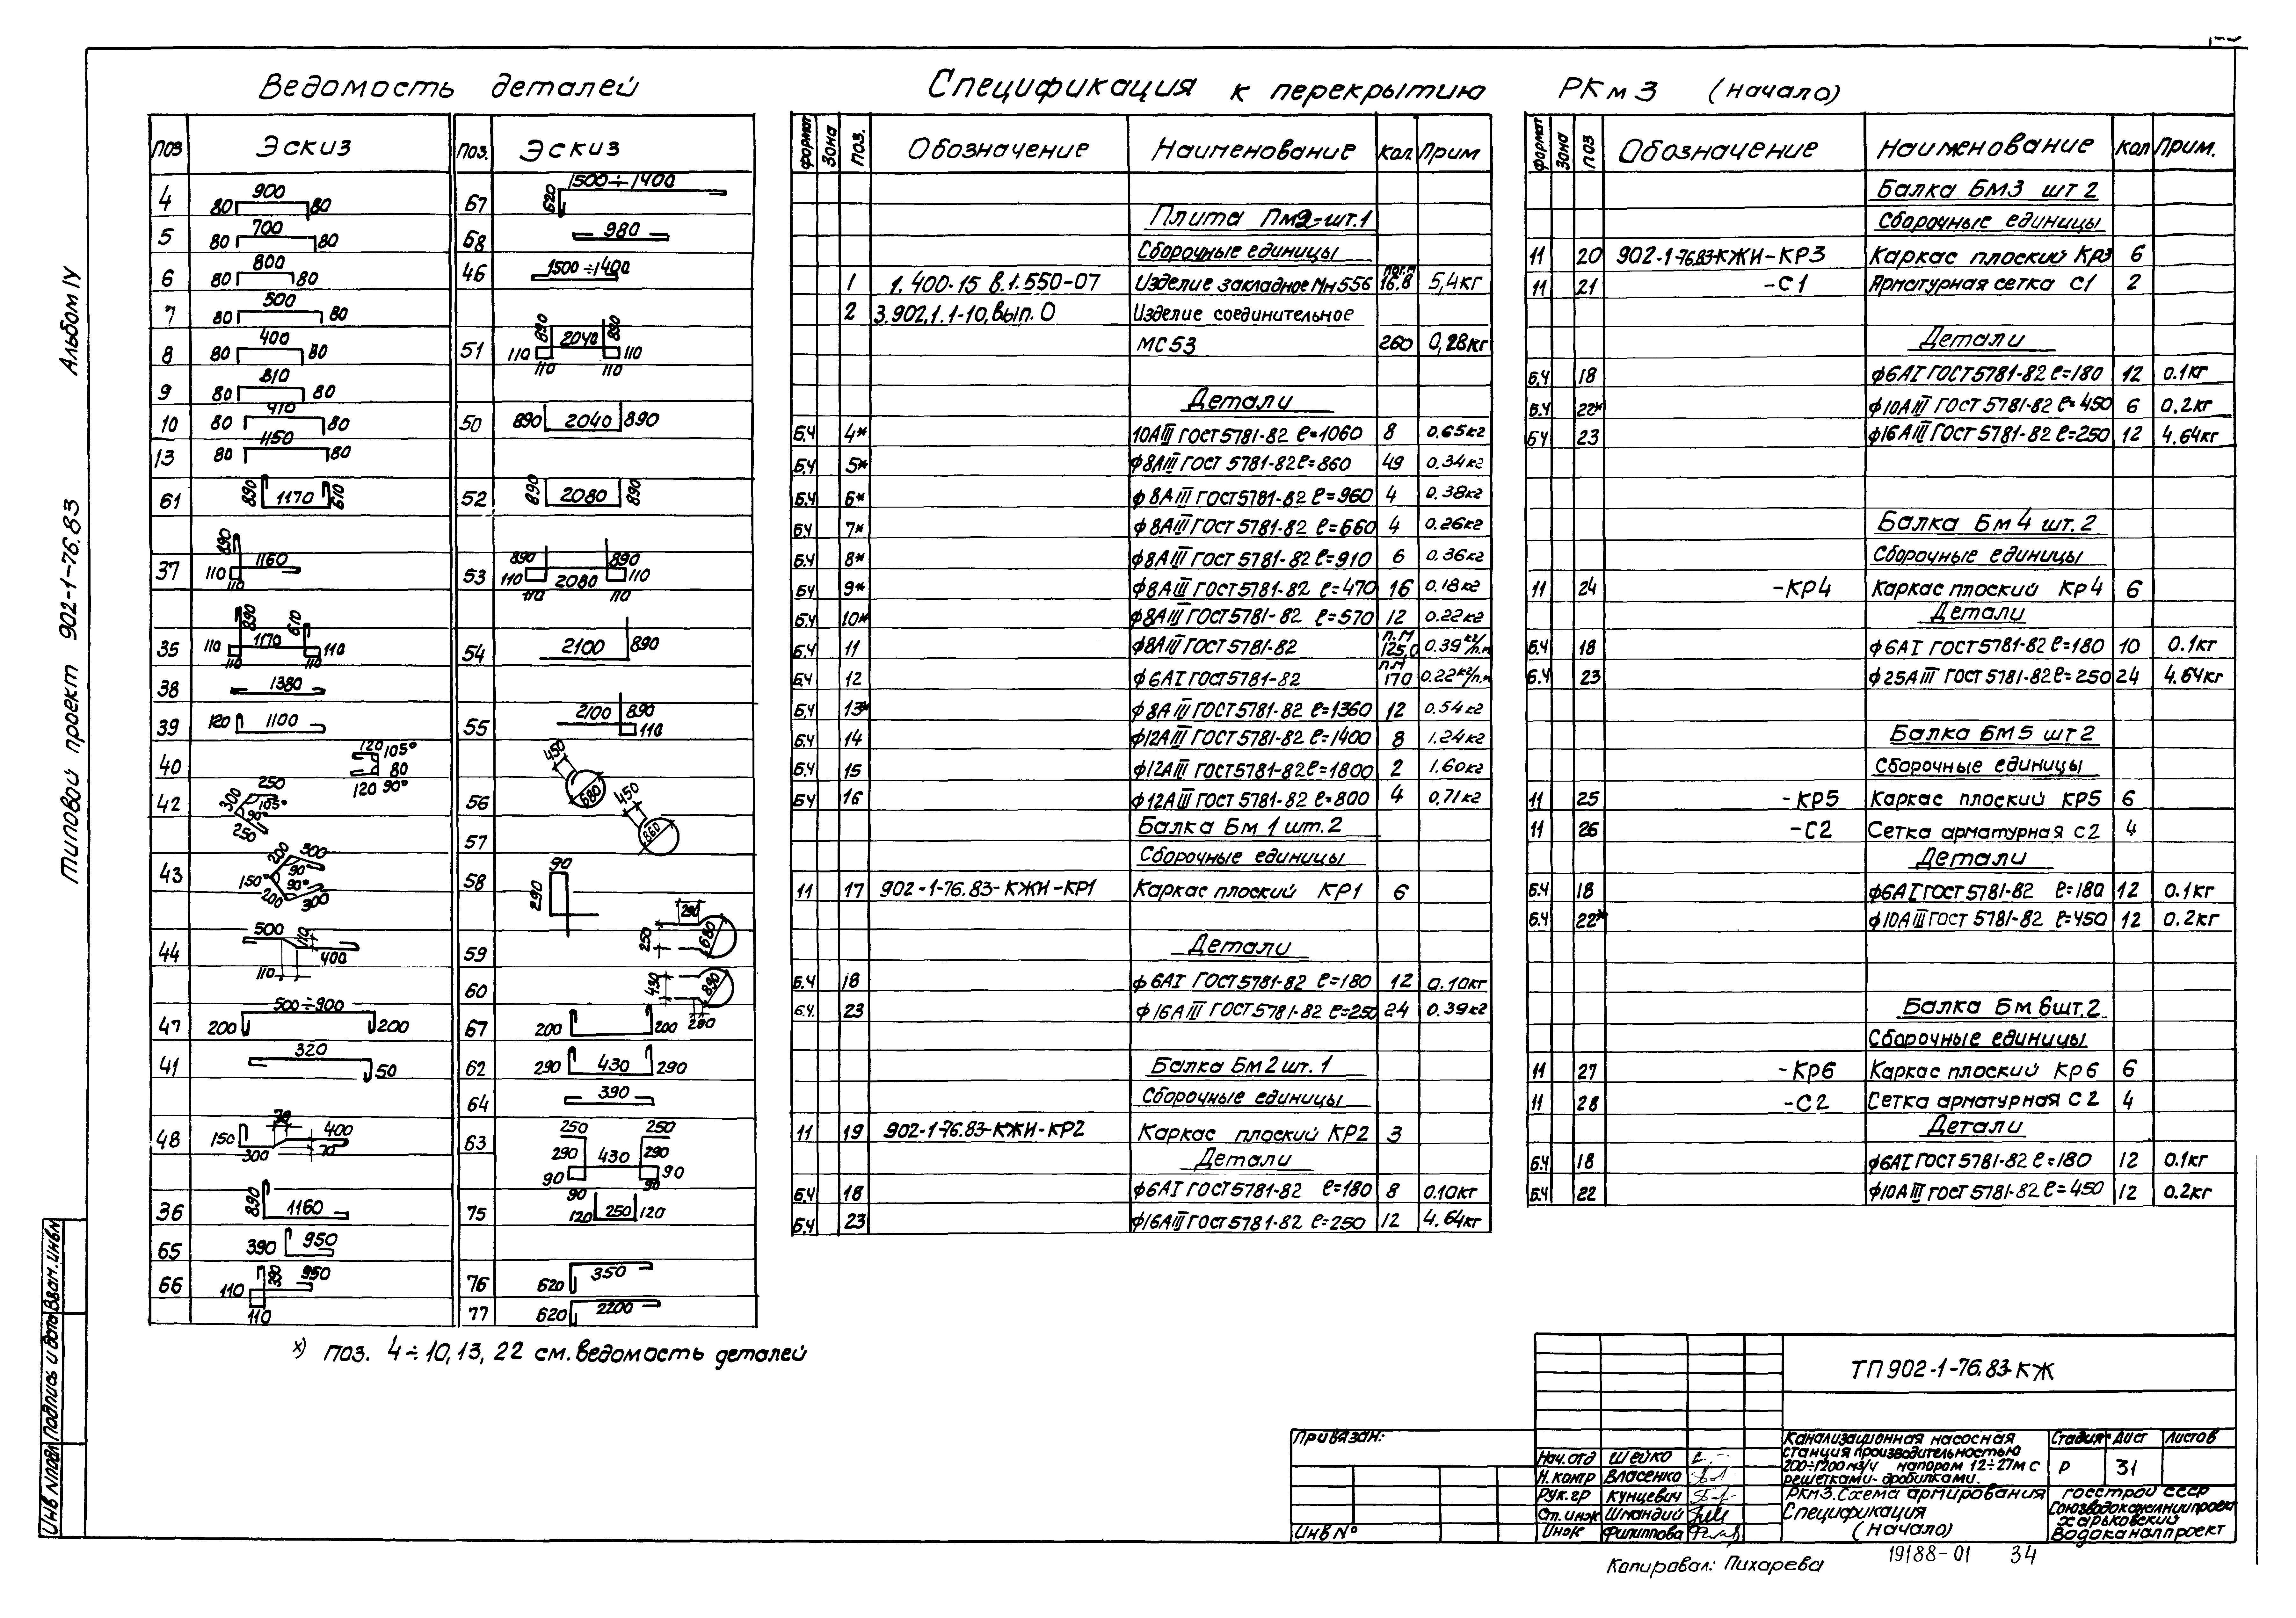 Ведомость деталей
поз Эскиз
4 900 80 80
5 700 80 80
6 800 80 80
7 500 80 80
8 400 80 80
9 310 80 80
10 410 80 80
13 1150 80 80
61 890 1170 610
37 890 1160 110 110
35 890 610 110 1170 110 110 110
38 1380
39 120 1100
40 120 105° 80 120 90°
42 250 300 105° 90° 250
43 200 300 90° 150° 90° 200 300
44 500 110 400 110
47 500÷900 200 200
41 320 50
48 70 400 150 300 70
36 890 1160
65 390 950
66 390 950 110 110
поз. Эскиз
67 1500÷1400 620
68 980
46 1500÷1400
51 890 890 2040 110 110 110 110
50 890 2040 890
52 890 2080 890
53 890 890 110 2080 110 110 110
54 2100 890
55 2100 890 110
56 450 680
57 450 860
58 90 290
59 290 250 680
60 430 890 290
67 200 200
62 290 430 290
64 390
63 250 250 290 430 290 90 90 90 90
75 120 250 120
76 620 350
77 620 2200
х) поз. 4÷10, 13, 22 см. ведомость деталей
Спецификация к перекрытию РКм3 (начало)
формат Зона поз. Обозначение Наименование Кол. Прим
Плита Пм2-шт.1
Сборочные единицы
1 1.400-15 в.1.550-07 Изделие закладное Мн556 пог.м 16.8 5,4кг
2 3.902,1.1-10, вып. 0 Изделие соединительное
МС53 260 0,28кг
Детали
Б.Ч 4* 10АIII ГОСТ 5781-82 ℓ=1060 8 0.65кг
Б.Ч 5* ф8АIII ГОСТ 5781-82 ℓ=860 49 0.34кг
Б.Ч 6* ф8АIII ГОСТ 5781-82 ℓ=960 4 0.38кг
Б.Ч 7* ф8АIII ГОСТ 5781-82 ℓ=660 4 0.26кг
Б.Ч 8* ф8АIII ГОСТ 5781-82 ℓ=910 6 0.36кг
БЧ 9* ф8АIII ГОСТ 5781-82 ℓ=470 16 0.18кг
Б.Ч 10* ф8АIII ГОСТ 5781-82 ℓ=570 12 0.22кг
Б.Ч 11 ф8АIII ГОСТ 5781-82 п.м 125.0 0.39 кг/п.м
Б.Ч 12 ф6АI ГОСТ 5781-82 п.м 170 0.22 кг/п.м
Б.Ч 13* ф8АIII ГОСТ 5781-82 ℓ=1360 12 0.54кг
Б.Ч 14 ф12АIII ГОСТ 5781-82 ℓ=1400 8 1.24кг
Б.Ч 15 ф12АIII ГОСТ 5781-82 ℓ=1800 2 1.60кг
БЧ 16 ф12АIII ГОСТ 5781-82 ℓ=800 4 0,71кг
Балка Бм 1 шт.2
Сборочные единицы
11 17 902-1-76.83-КЖИ-КР1 Каркас плоский КР1 6
Детали
Б.Ч 18 ф6АI ГОСТ 5781-82 ℓ=180 12 0.10кг
Б.Ч. 23 ф16АIII ГОСТ 5781-82 ℓ=250 24 0.39кг
Балка Бм2 шт. 1
Сборочные единицы
11 19 902-1-76.83-КЖИ-КР2 Каркас плоский КР2 3
Детали
Б.Ч 18 ф6АI ГОСТ 5781-82 ℓ=180 8 0.10кг
Б.Ч 23 ф16АIII ГОСТ 5781-82 ℓ=250 12 4.64кг
формат Зона поз Обозначение Наименование Кол Прим.
Балка Бм3 шт 2
Сборочные единицы
11 20 902-1-76.83-КЖИ-КР3 Каркас плоский Кр3 6
11 21 -С1 Арматурная сетка С1 2
Детали
Б.Ч 18 ф6АI ГОСТ 5781-82 ℓ=180 12 0.1кг
Б.Ч 22* ф10АIII ГОСТ 5781-82 ℓ=450 6 0.2кг
БЧ 23 ф16АIII ГОСТ 5781-82 ℓ=250 12 4.64кг
Балка Бм 4 шт. 2
Сборочные единицы
11 24 -КР4 Каркас плоский Кр 4 6
Детали
Б.Ч 18 ф6АI ГОСТ 5781-82 ℓ=180 10 0.1кг
Б.Ч 23 ф25АIII ГОСТ 5781-82 ℓ=250 24 4.64кг
Балка Бм 5 шт 2
Сборочные единицы
11 25 -КР5 Каркас плоский КР5 6
11 26 -С2 Сетка арматурная с2 4
Детали
Б.Ч 18 ф6АI ГОСТ 5781-82 ℓ=180 12 0.1кг
Б.Ч 22* ф10АIII ГОСТ 5781-82 ℓ=450 12 0.2кг
Балка Бм 6шт.2
Сборочные единицы
11 27 -Кр6 Каркас плоский Кр 6 6
11 28 -С2 Сетка арматурная С 2 4
Детали
Б.Ч 18 ф6АI ГОСТ 5781-82 ℓ=180 12 0.1кг
Б.Ч 22 ф10АIII ГОСТ 5781-82 ℓ=450 12 0.2кг
Типовой проект 902-1-76.83 Альбом IV
Инв N подл Подпись и дата Взам. инв N
Привязан:
Инв N°
Нач. отд Шейко
Н. контр Власенко
Рук. гр Кунцевич
Ст. инж Шмандий
Инж Филиппова
ТП 902-1-76.83-КЖ
Канализационная насосная
станция производительностью
200÷1200 м3/ч напором 12÷27м с
решетками-дробилками.
РКм3. Схема армирования
Спецификация
(Начало)
Стадия Лист Листов
Р 31
Госстрой СССР
Союзводоканалниипроект
Харьковский
Водоканалпроект
Копировал: Пихарева
19188-01 34